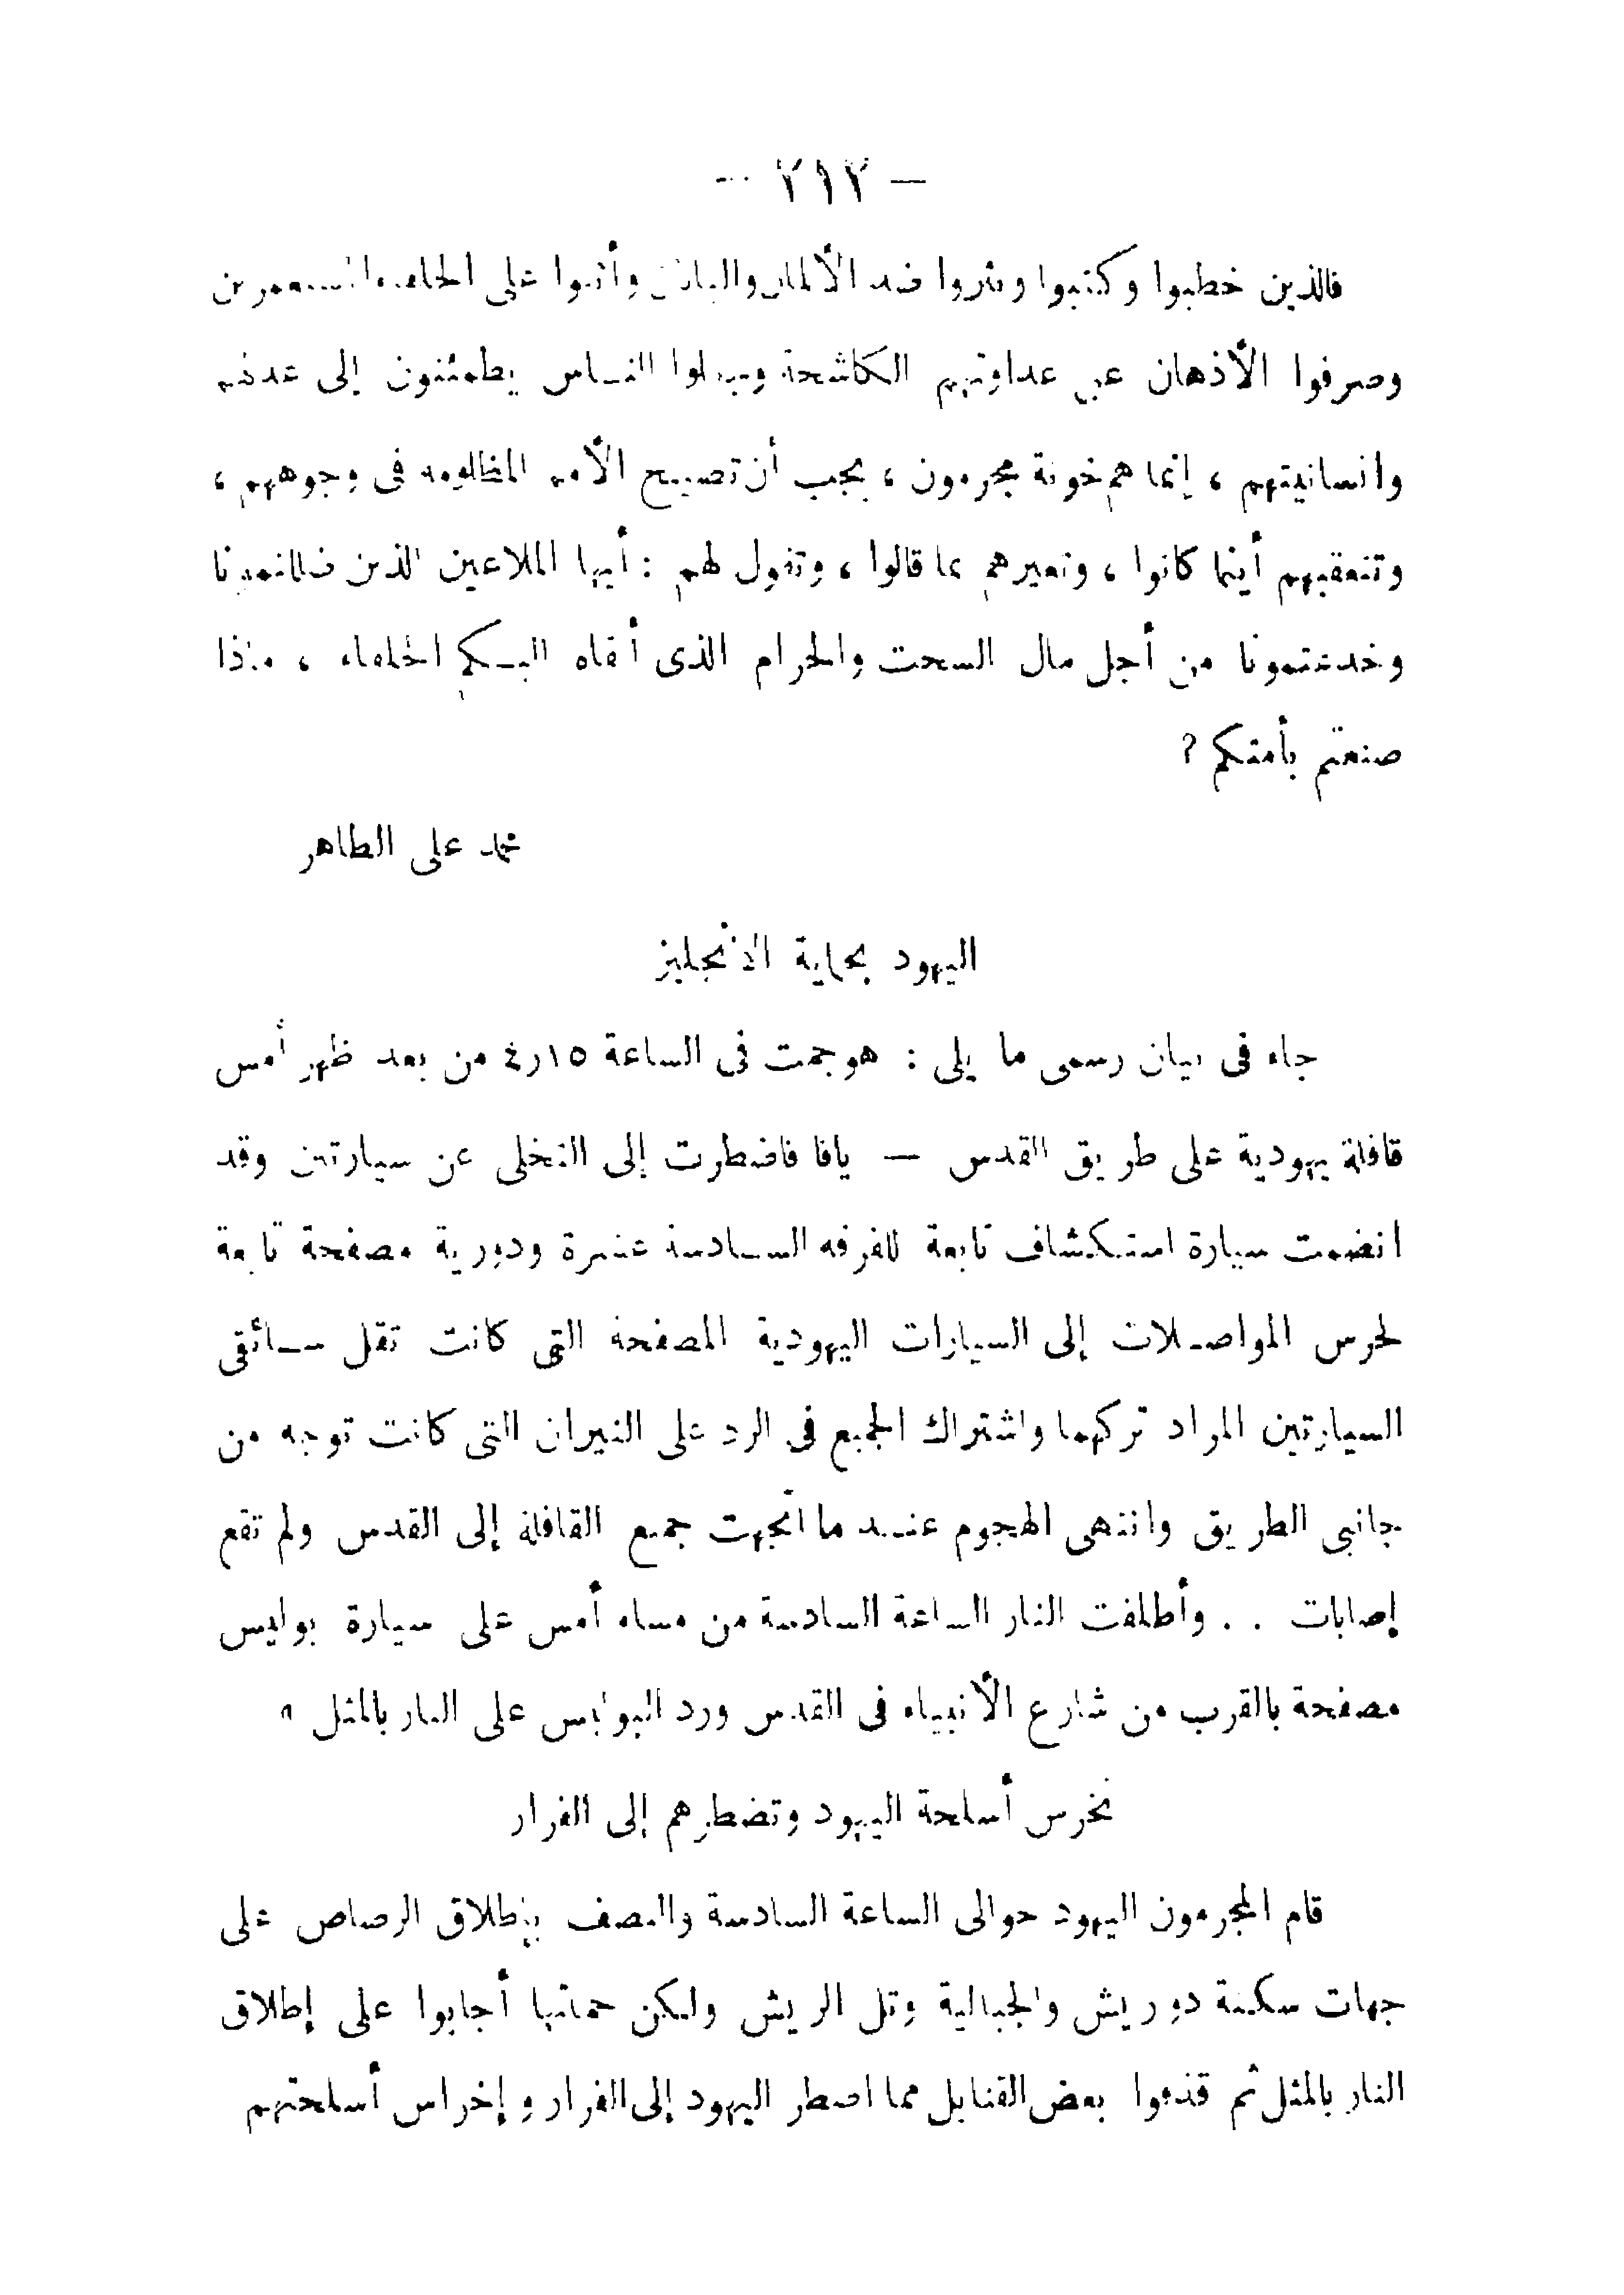 — ٢١٢ —
فالذين خطبوا وكتبوا ونثروا ضد الألمان واليابان وأثنوا على الحلفاء المستعمرين
وصرفوا الأذهان عن عداوتهم الكاشحة وجعلوا النـاس يطمئنون إلى عدلهم
وانسانيتهم ، إنما هم خونة مجرمون ، يجب أن تصيح الأمم المظلومة فى وجوههم ،
وتتعقبهم أينما كانوا ، وتعيرهم بما قالوا ، وتقول لهم : أيها الملاعين الذين ضللتمونا
وخدعتمونا من أجل مال السحت والحرام الذى ألقاه اليـكم الحلفاء ، ماذا
صنعتم بأمتكم ?
محمد على الطاهر
اليهود بحماية الانجليز
جاء فى بيان رسمى ما يلى : هوجمت فى الساعة ١٥ر٤ من بعد ظهر أمس
قافلة يهودية على طريق القدس — يافا فاضطرت إلى التخلى عن سيارتين وقد
انضمت سيارة استـكشاف تابعة للفرقة السـادسة عشرة ودورية مصفحة تابعة
لحرس المواصـلات إلى السيارات اليهودية المصفحة التى كانت تقل سـائقى
السيارتين المراد تركهما واشتراك الجميع فى الرد على النيران التى كانت توجه من
جانبى الطريق وانتهى الهجوم عنـد ما اتجهت جميع القافلة إلى القدس ولم تقع
إصابات . . وأطلقت النار الساعة السادسة من مساء أمس على سيارة بوليس
مصفحة بالقرب من شارع الأنبياء فى القدس ورد البوليس على النار بالمثل »
نخرس أسلحة اليهود وتضطرهم إلى الفرار
قام المجرمون اليهود حوالى الساعة السادسة والنصف بإطلاق الرصاص على
جهات سكنة درويش والجبالية وتل الريش ولكن حماتها أجابوا على إطلاق
النار بالمثل ثم قذفوا بعض القنابل مما اضطر اليهود إلى الفرار وإخراس أسلحتهم